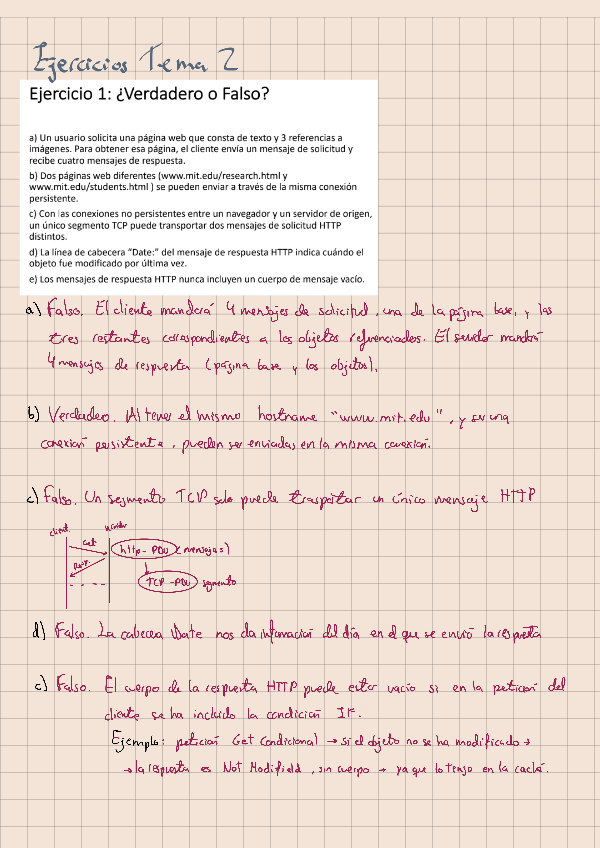 Ejercicios Tema 2
Ejercicio 1: ¿Verdadero o Falso?
a) Un usuario solicita una página web que consta de texto y 3 referencias a
imágenes. Para obtener esa página, el cliente envía un mensaje de solicitud y
recibe cuatro mensajes de respuesta.
b) Dos páginas web diferentes (www.mit.edu/research.html y
www.mit.edu/students.html ) se pueden enviar a través de la misma conexión
persistente.
c) Con las conexiones no persistentes entre un navegador y un servidor de origen,
un único segmento TCP puede transportar dos mensajes de solicitud HTTP
distintos.
d) La línea de cabecera "Date:" del mensaje de respuesta HTTP indica cuándo el
objeto fue modificado por última vez.
e) Los mensajes de respuesta HTTP nunca incluyen un cuerpo de mensaje vacío.
a) Falso. El cliente mandará 4 mensajes de solicitud, una de la página base, y las
tres restantes correspondientes a los objetos referenciados. El servidor mandará
4 mensajes de respuesta (página base y los objetos).
b) Verdadero. Al tener el mismo hostname "www.mit.edu", y en una
conexión persistente, pueden ser enviadas en la misma conexión.
c) Falso. Un segmento TCP solo puede trasportar un único mensaje HTTP
client
Get
http-PDU (mensajes)
TCP-PDU segmento
d) Falso. La cabecera Date nos da información del día en el que se envió la respuesta
c) Falso. El cuerpo de la respuesta HTTP puede estar vacío si en la petición del
cliente se ha incluido la condición IF.
Ejemplo: petición Get Condicional → si el objeto no se ha modificado →
→ la respuesta es Not Modifield, sin cuerpo → ya que lo tengo en la caché.